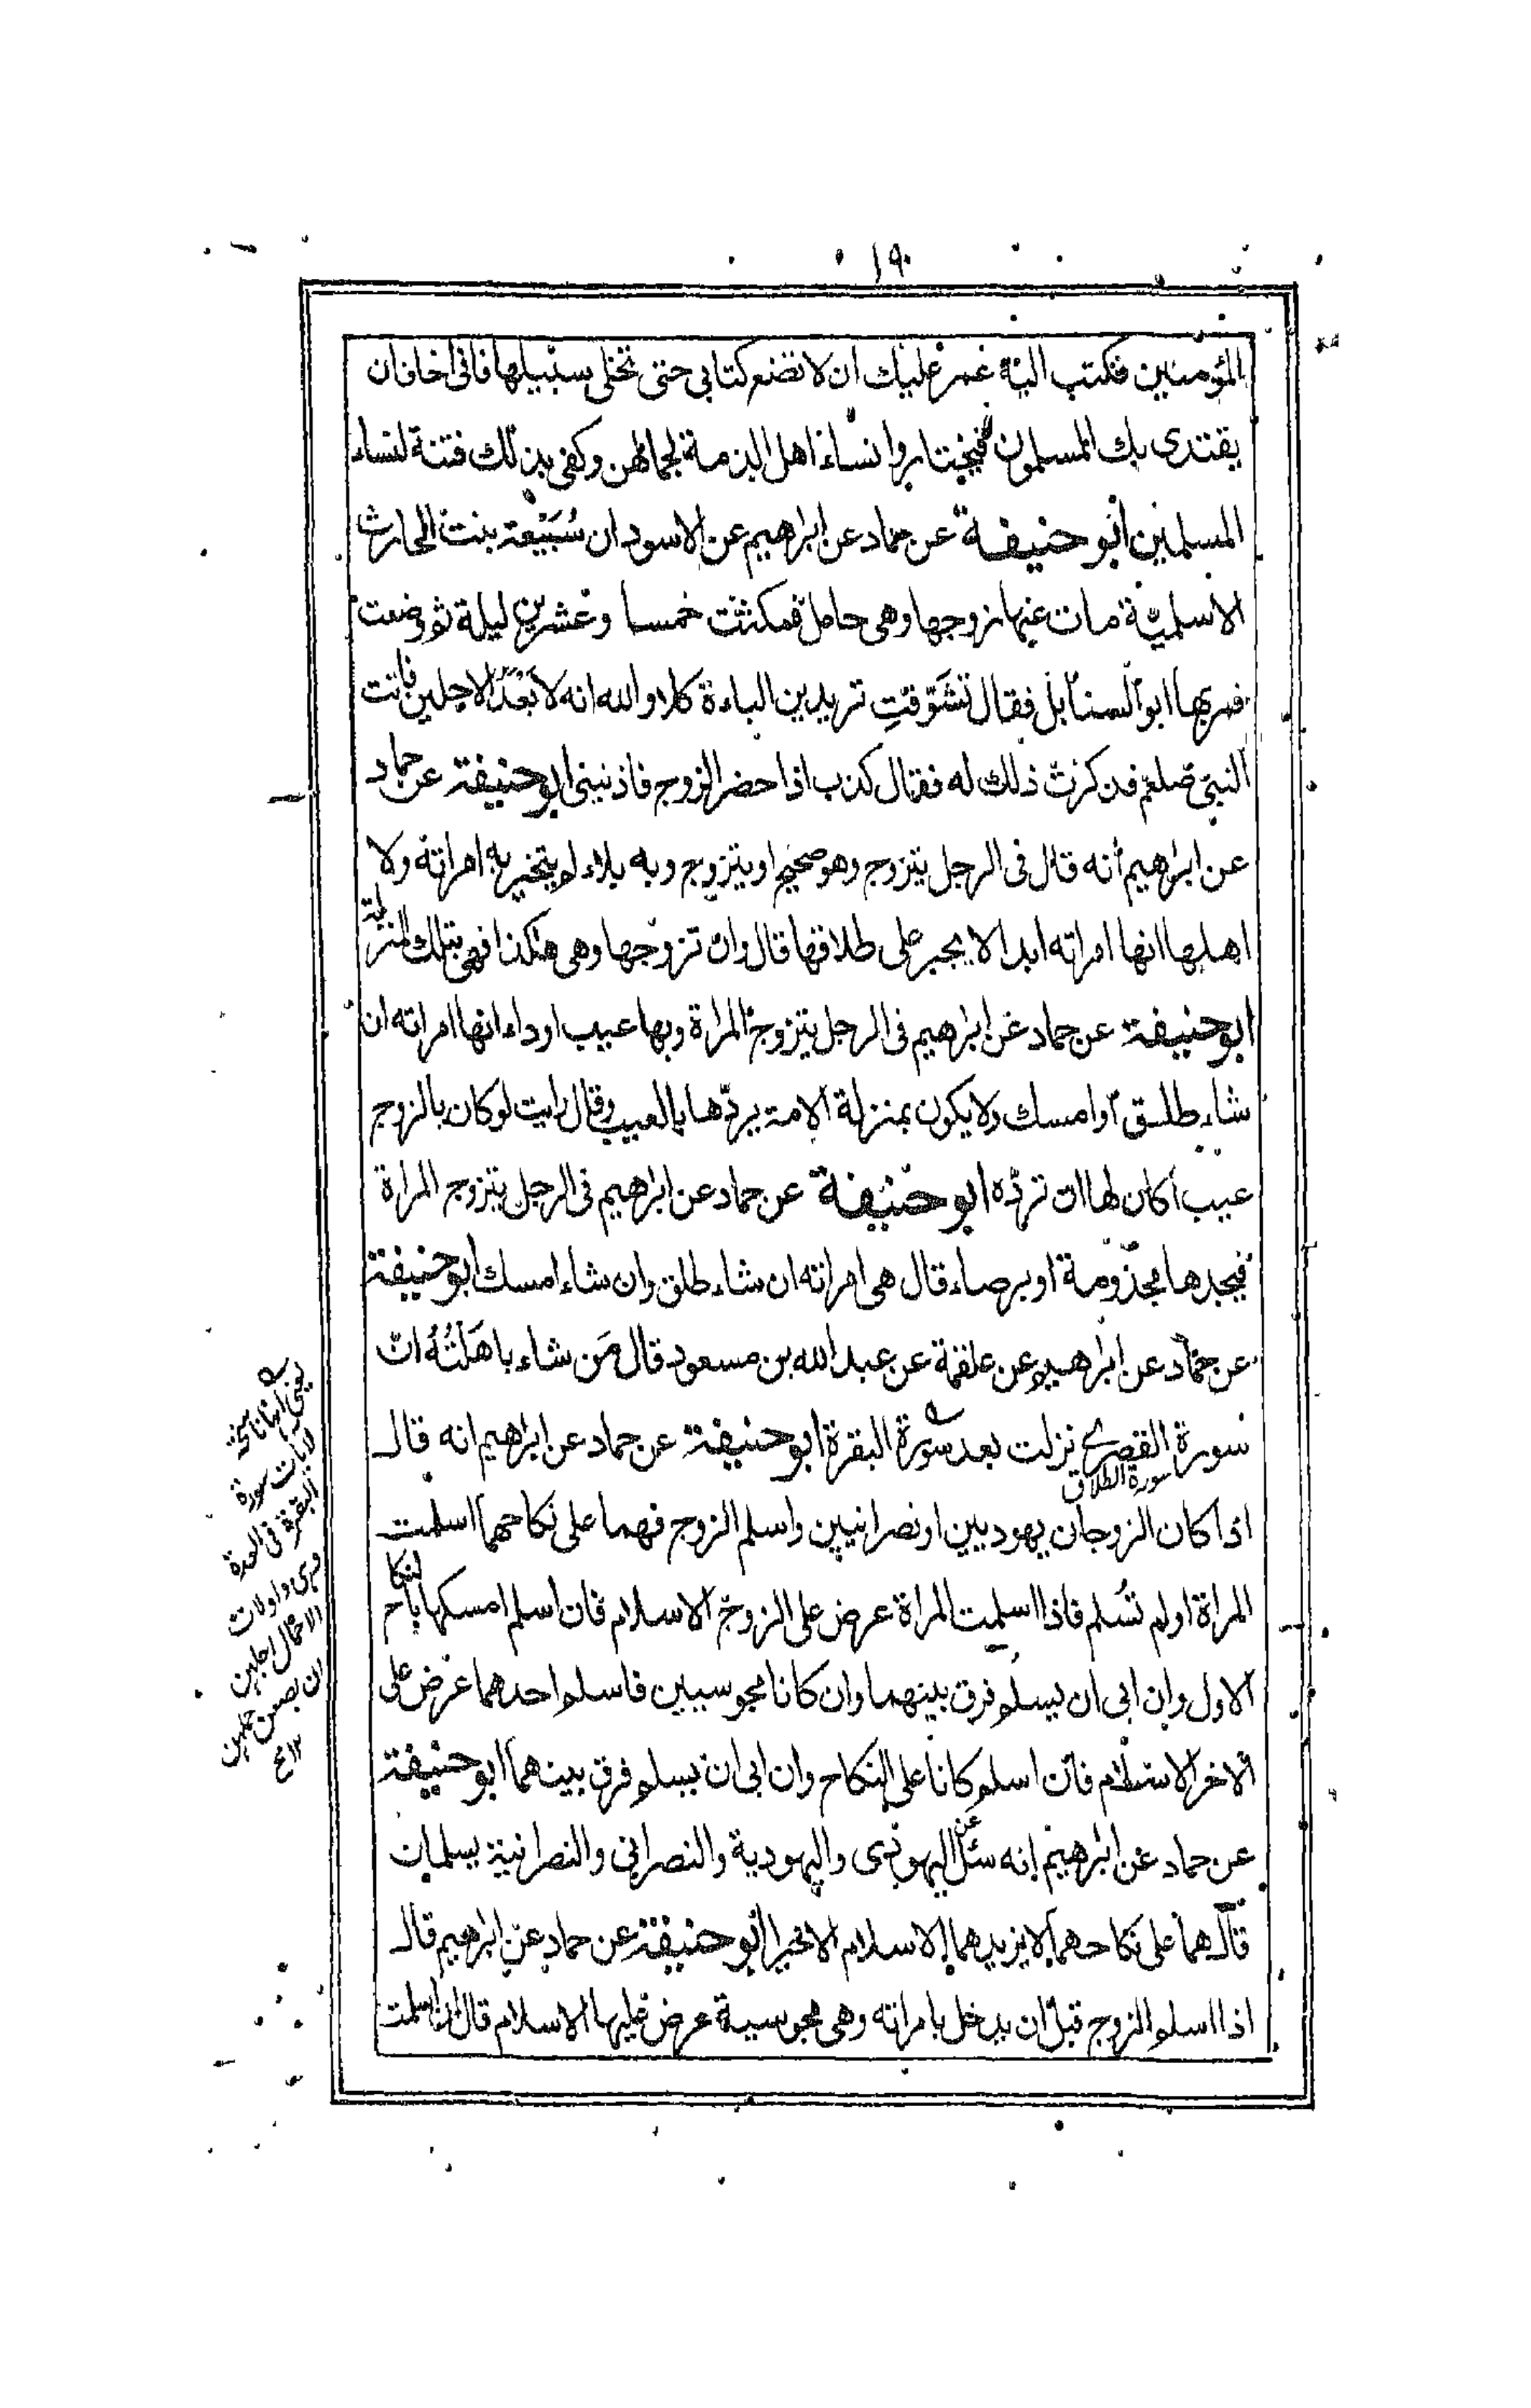 ١٩
المؤمنين فكتب اليه عمر عليك ان لا تضع كتابي حتى تخلى سبيلها فانى اخاف ان
يقتدى بك المسلمون فيختاروا نساء اهل الذمة لجمالهن وكفى بذلك فتنة لنساء
المسلمين ابو حنيفة عن حماد عن ابراهيم عن الاسود ان سُبَيْعة بنت الحارث
الاسلميّة مات عنها زوجها وهى حامل فمكثت خمسا وعشرين ليلة ثم وضعت
فمر بها ابو السنابل فقال تَشَوَّفتِ تريدين الباءة كلا والله انه لاَبْعَدُ الاجلين فاتت
النبى صلعم فذكرت ذلك له فقال كذب اذا حضر الزوج فاذنينى ابو حنيفة عن حماد
عن ابراهيم انه قال فى الرجل يتزوج وهو صحيح او يتزوج وبه بلاء لم يتخير به امراته ولا
اهلها انها امراته ابدا لا يجبر على طلاقها قال وان تزوجها وهى هكذا فهى بتلك المنزلة
ابو حنيفة عن حماد عن ابراهيم فى الرجل يتزوج المراة وبها عيب او داء انها امراته ان
شاء طلق او امسك ولا يكون بمنزلة الامة يردّها بالعيب وقال رايت لو كان بالزوج
عيب اكان لها ان تردّه ابو حنيفة عن حماد عن ابراهيم فى الرجل يتزوج المراة
فيجدها مجذومة او برصاء قال هى امراته ان شاء طلق وان شاء امسك ابو حنيفة
عن حماد عن ابراهيم عن علقمة عن عبد الله بن مسعود قال مَن شاء باهَلْتُهُ انّ
سورة القصرى نزلت بعد سورة البقرة ابو حنيفة عن حماد عن ابراهيم انه قال
سورة الطلاق
اذا كان الزوجان يهوديين او نصرانيين واسلم الزوج فهما على نكاحهما اسلمت
المراة او لم تُسلم فاذا اسلمت المراة عرض على الزوج الاسلام فان اسلم امسكها بالنكاح
الاول وان ابى ان يسلم فرق بينهما وان كانا مجوسيين فاسلم احدهما عرض على
الاخر الاسلام فان اسلم كانا على النكاح وان ابى ان يسلم فرق بينهما ابو حنيفة
عن حماد عن ابراهيم انه سئل عن اليهودى واليهودية والنصرانى والنصرانية يسلمان
قال هما على نكاحهما لا يزيدهما الاسلام الا خيرا ابو حنيفة عن حماد عن ابراهيم قال
اذا اسلم الزوج قبل ان يدخل بامراته وهى مجوسية عرض عليها الاسلام قال ان اسلمت
يعنى انها ناسخة
لآيات سورة
البقرة فى العدة
وهى واولات
الاحمال اجلهن
ان يضعن حملهن